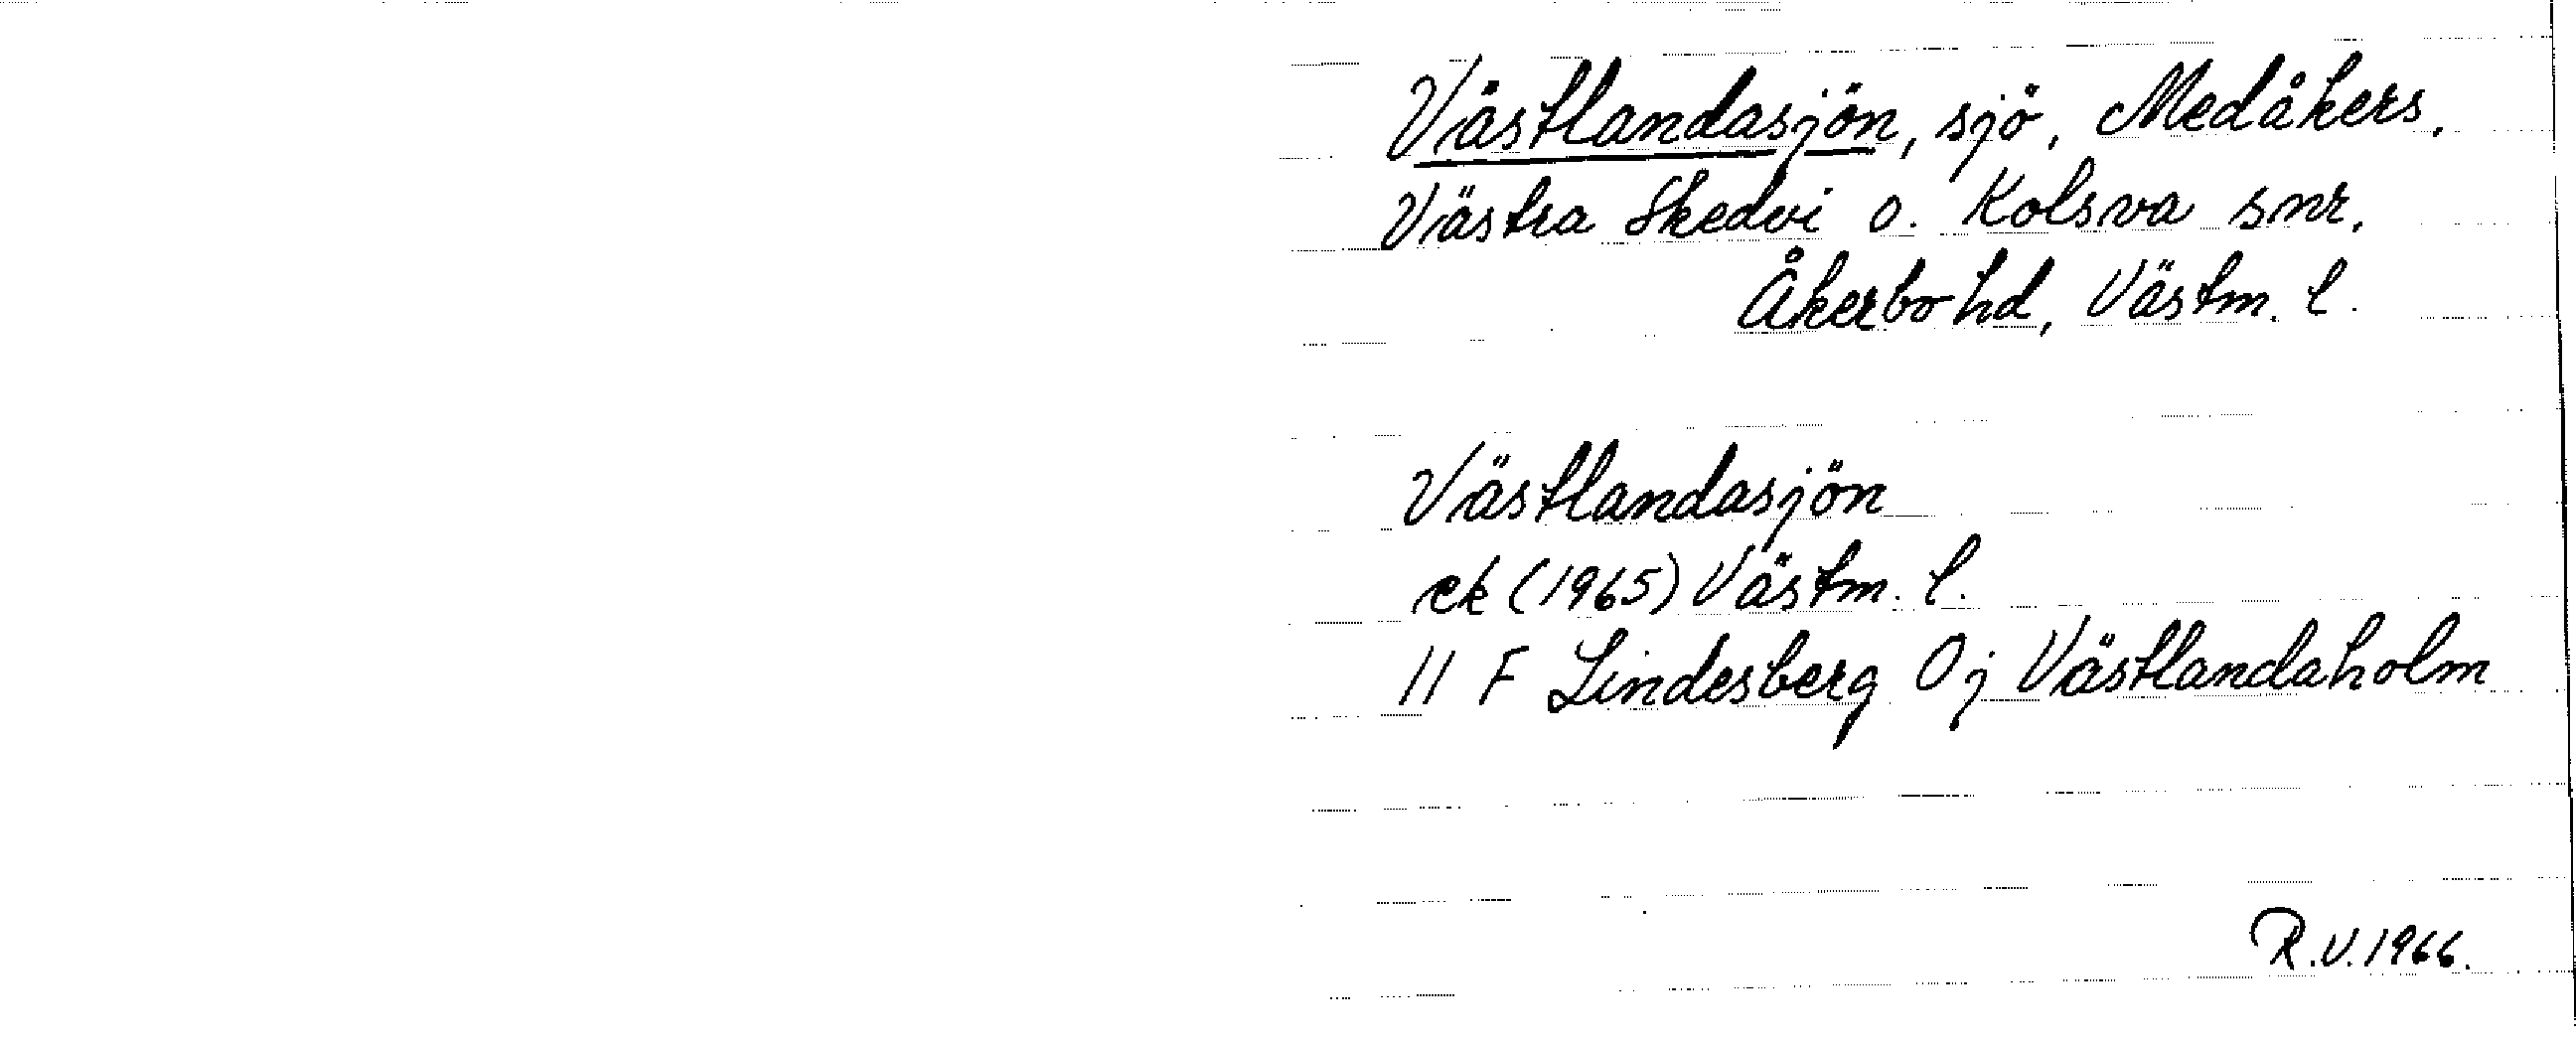 Västlandasjön, sjö, Medåkers,
Västra Skedvi o. Kolsva snr,
Åkerbo hd, Västm. l.
Västlandasjön
ek (1965) Västm. l.
11 F Lindesberg 0j Västlandaholm
R.V. 1966.